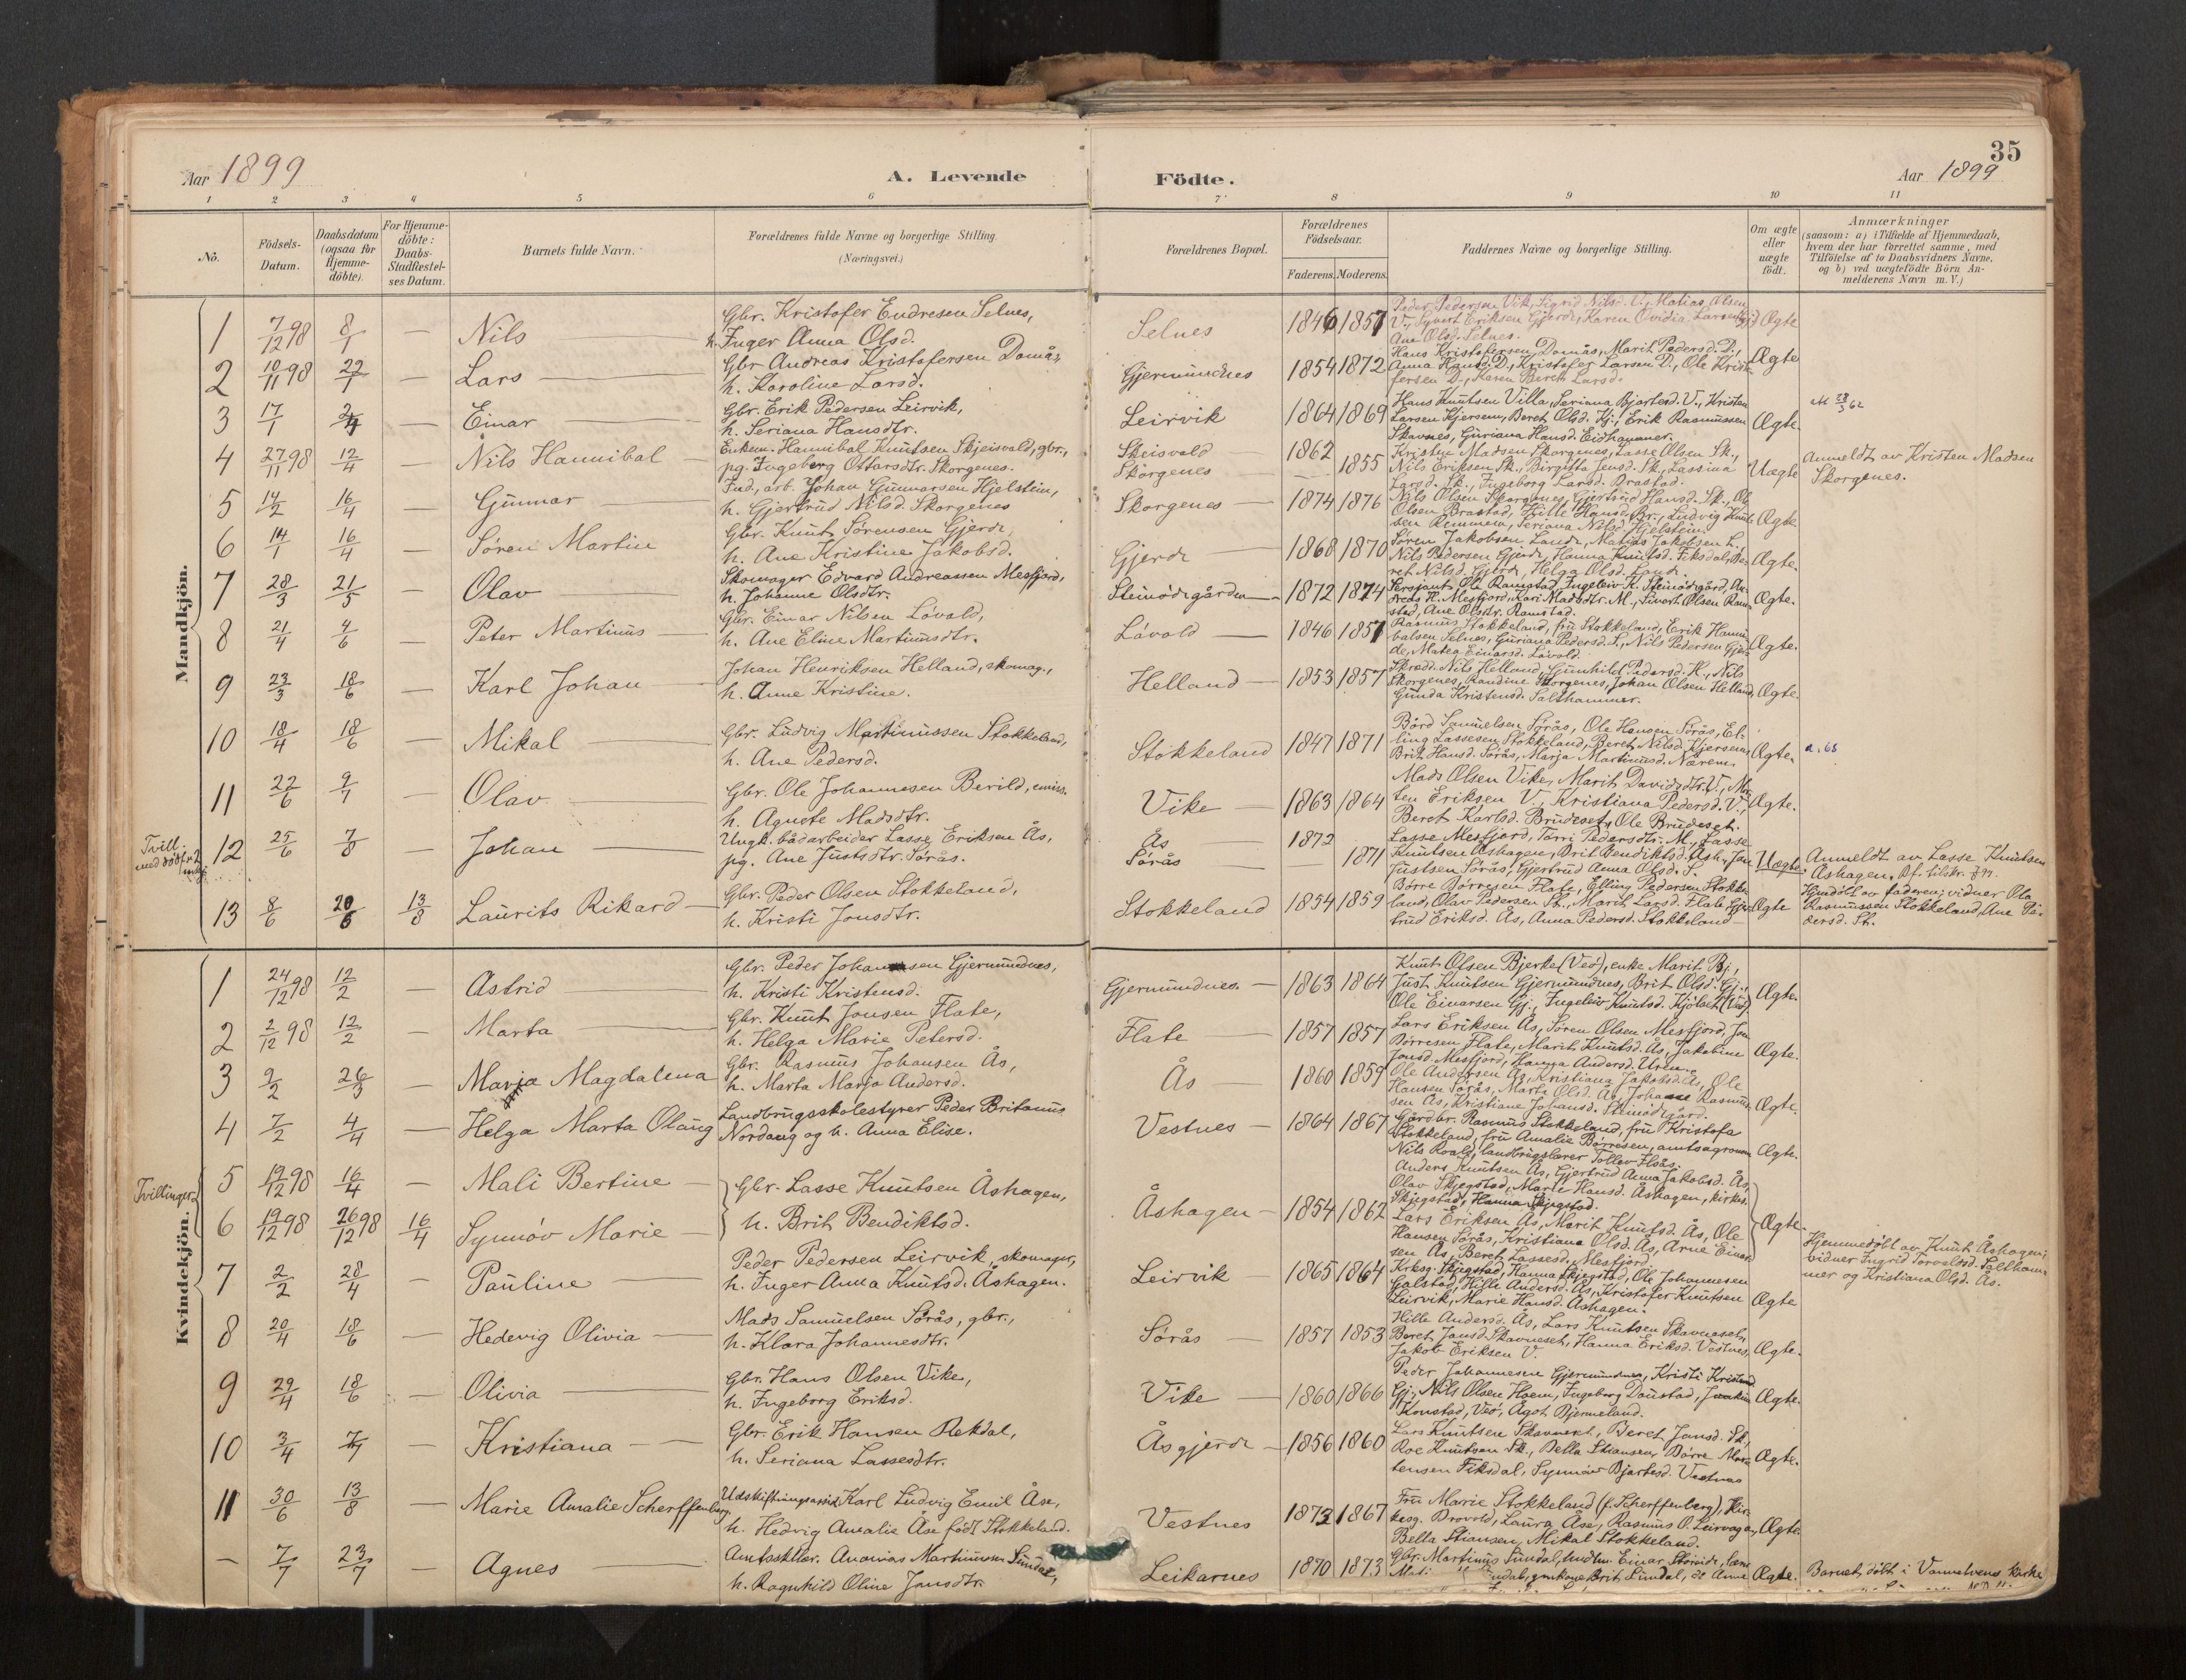 35
Aar 1899
A. Levende Födte.
Aar 1899
1 2 3 4 5 6 7 8 9 10 11
No.
Födsels-Datum.
Daabsdatum (ogsaa for Hjemme-döbte).
For Hjemme-döbte: Daabs-Stadfæstel-ses Datum.
Barnets fulde Navn.
Forældrenes fulde Navne og borgerlige Stilling. (Næringsvei.)
Forældrenes Bopæl.
Forældrenes Födselsaar.
Faderens. Moderens.
Faddernes Navne og borgerlige Stilling.
Om ægte eller uægte födt.
Anmærkninger (saasom: a) i Tilfælde af Hjemmedaab, hvem der har forrettet samme, med Tilföielse af to Daabsvidners Navne, og b) ved uægtefödte Börn An-melderens Navn m. V.)
Mandkjön.
1 7/12 98 8/1 — Nils
Gbr. Kristofer Endresen Selnes,
h. Inger Anna Olsd.
Selnes 1846 1857
Peder Pedersen Vik, Sigrid Nilsd. V., Matias Olsen
V., Syvert Eriksen Gjerde, Karen Ovidia Larsen
Ane Olsd. Selnes.
Ægte
2 10/11 98 22/1 — Lars
Gbr Andreas Kristofersen Domås,
h. Karoline Larsd.
Gjermundnes 1854 1872
Hans Kristofersen Domås, Marit Pedersd. D.,
Anna Hansd. D., Kristofer Larsen D., Ole Kristo-
fersen D., Karen Beret Larsd.
Ægte
3 17/1 2/4 — Einar
Gbr. Erik Pedersen Leirvik,
h. Seriana Hansdtr.
Leirvik 1864 1869
Hans Knutsen Villa, Seriana Bjartesd. V., Kristen
Larsen Kjersem, Beret Olsd. Kj., Erik Rasmussen
Skavnes, Guriana Hansd. Eidhammer.
Ægte.
4 27/11 98 12/4 — Nils Hannibal
Enkem. Hannibal Knutsen Skjeisvold, gbr.,
pg. Ingeborg Ottarsdtr. Skorgenes.
Skeisvold 1862
Skorgenes — 1855
Kristen Madsen Skorgenes, Lasse Olsen Sk.,
Nils Eriksen Sk., Birgitta Jensd. Sk., Lassina
Larsd. Sk., Ingeborg Larsd. Brastad.
Uægte
Anmeldt av Kristen Madsen
Skorgenes.
5 14/2 16/4 — Gunnar
Ind., arb. Johan Gunnarsen Hjelstein,
h. Gjertrud Nilsd. Skorgenes
Skorgenes 1874 1876
Nils Olsen Skorgenes, Gjertrud Hansd. Sk., Ol.
Olsen Brastad, Hille Hansd. Br., Ludvig Knut-
sen Remmem, Seriana Nilsd. Hjelstein.
Ægte
6 14/1 16/4 — Søren Martin
Gbr. Knut Sørensen Gjerde,
h. Ane Kristine Jakobsd.
Gjerde 1868 1870
Søren Jakobsen Lande, Matias Jakobsen L.,
Nils Pedersen Gjerde, Hanna Knutsd. Fiksdal, Be-
ret Nilsd. Gjerde, Helga Olsd. Lande.
Ægte.
7 28/3 21/5 — Olav
Skomager Edvard Andreassen Mesfjord,
h. Johanne Olsdtr.
Steinødegården 1872 1874
Sersjant Ole Ramstad, Ingeleiv K. Steinødegård, An-
dreas K. Mesfjord, Kari Madsdtr. M., Sivert Olsen Ram-
stad, Ane Olsdtr. Ramstad.
Ægte.
8 21/4 4/6 — Peter Martinus
Gbr. Einar Nilsen Løvold,
h. Ane Eline Martinusdtr.
Løvold 1846 1857
Rasmus Stokkeland, fru Stokkeland, Erik Hanni-
balsen Selnes, Guriana Pedersd. S., Nils Pedersen Gjer-
de, Matea Einarsd. Løvold.
Ægte.
9 23/3 18/6 — Karl Johan
Johan Henriksen Helland, skomag.,
h. Anne Kristine.
Helland 1853 1857
Skrædd. Nils Helland, Gunhild Pedersd. H., Nils
Skorgenes, Randine Skorgenes, Johan Olsen Helland,
Gunda Kristensd. Salthammer.
Ægte.
10 18/4 18/6 — Mikal
Gbr. Ludvig Martinussen Stokkeland,
h. Ane Pedersd.
Stokkeland 1847 1871
Bård Samuelsen Sørås, Ole Hansen Sørås, El-
ling Lassesen Stokkeland, Beret Nilsd. Kjersem,
Brit Hansd. Sørås, Marja Martinusd. Nærem.
Ægte.
11 22/6 9/7 — Olav
Gbr. Ole Johannesen Berild, emiss.
h. Agnete Madsdtr.
Vike 1863 1864
Mads Olsen Vike, Marit Davidsdtr. V., Mor-
ten Eriksen V., Kristiana Pedersd. V.,
Beret Karlsd. Brudeset, Ole Brudeset.
Ægte.
Tvill.
12 25/6 7/8 — Johan
Ungk. bådarbeider Lasse Eriksen Ås,
pg. Ane Justsdtr. Sørås.
Ås 1872
Sørås — 1871
Lasse Mesfjord, Torri Pedersdtr. M., Lasse
Knutsen Åshagen, Brit Bendiktsd. Åsh., Jon
Justsen Sørås, Gjertrud Anna Olsd. S.
Uægte.
Anmeldt av Lasse Knutsen
Åshagen.
13 8/6 20/6 13/8 Laurits Rikard
Gbr. Peder Olsen Stokkeland,
h. Kristi Jonsdtr.
Stokkeland 1854 1859
Børre Børresen Flate, Elling Pedersen Stokke-
land, Olav Pedersen St., Marit Larsd. Flate, Gjer-
trud Eriksd. Ås, Anna Pedersd. Stokkeland
Ægte
Hjemdøbt av faderen; vidner Ola
Rasmussen Stokkeland, Ane Pe-
dersd. St.
Kvindekjön.
1 24/12 98 12/2 — Astrid
Gbr. Peder Johansen Gjermundnes,
h. Kristi Kristensd.
Gjermundnes 1863 1864
Knut Olsen Bjerke (Veø), enke Marit Bj.,
Just Knutsen Gjermundnes, Brit Olsd. Gj.,
Ole Einarsen Gj., Ingeleiv Knutsd. Kjølset (Veø).
Ægte.
2 2/12 98 12/2 — Marta
Gbr. Knut Jonsen Flate,
h. Helga Marie Petersd.
Flate 1857 1857
Lars Eriksen Ås, Søren Olsen Mesfjord, Jon
Børresen Flate, Marit Knutsd. Ås, Jakobine
Jonsd. Mesfjord, Hanna Andersd. Uren.
Ægte.
3 9/2 26/3 — Marja Magdalena
Gbr. Rasmus Johansen Ås,
h. Marta Marja Andersd.
Ås 1860 1859
Ole Andersen Ås, Kristiana Jakobsd. Ås, Ole
Hansen Sørås, Marta Olsd. Ås, Johan Rasmus-
sen Ås, Kristiane Johansd. Steinødegård.
Ægte.
4 7/2 4/4 — Helga Marta Olaug
Landbrugsskolestyrer Peder Britanus
Nordang og h. Anna Elise.
Vestnes 1864 1867
Gårdbr. Rasmus Stokkeland, fru Kristofa
Stokkeland, fru Amalie Børresen, amtsagronom
Nils Roald, landbrugslærer Tollev Hsås.
Ægte.
Tvillinger
5 19/12 98 16/4 — Mali Bertine
6 19/12 98 26/12 98 16/4 Synnøv Marie
Gbr. Lasse Knutsen Åshagen,
h. Brit Bendiktsd.
Åshagen 1854 1862
Anders Knutsen Ås, Gjertrud Anna Jakobsd. Ås,
Olav Skjegstad, Marte Hansd. Åshagen, kirkes.
Skjegstad, Hanna Skjegstad.
Lars Eriksen Ås, Marit Knutsd. Ås, Ole
Hansen Sørås, Kristiana Olsd. Ås, Arne Einar-
sen Ås, Beret Lassesd. Mesfjord.
Ægte.
Hjemmedøbt av Knut Åshagen;
vidner Ingrid Torvaldsd. Saltham-
mer og Kristiana Olsd. Ås.
7 2/2 28/4 — Pauline
Peder Pedersen Leirvik, skomager,
h. Inger Anna Knutsd. Åshagen.
Leirvik 1865 1864
Kirkesg. Skjegstad, Hanna Skjegstad, Ole Johannesen
Galstad, Hille Andersd. Ås, Kristofer Knutsen
Leirvik, Marie Hansd. Åshagen.
Ægte
8 20/4 18/6 — Hedevig Olivia
Mads Samuelsen Sørås, gbr.,
h. Klara Johannesdtr.
Sørås 1857 1853
Hille Andersd. Ås, Lars Knutsen Skavneset,
Beret Jonsd. Skavneset, Hanna Eriksd. Vestnes,
Jakob Eriksen V.
Ægte.
9 29/4 18/6 — Olivia
Gbr. Hans Olsen Vike,
h. Ingeborg Eriksd.
Vike 1860 1866
Peder Johannesen Gjermundnes, Kristi Kristensd.
Gj., Nils Olsen Hoem, Ingeborg Daustad, Joakim
Konstad, Veø, Agot Bjermeland.
Ægte.
10 3/4 7/7 — Kristiana
Gbr. Erik Hansen Rekdal,
h. Seriana Lassesdtr.
Åsgjerde 1856 1860
Lars Knutsen Skavneset, Beret Jonsd. Sk.,
Roe Knutsen Sk., Bella Stiansen, Børre Mor-
tensen Fiksdal, Synnøv Bjartesd. Vestnes
Ægte.
11 30/6 13/8 — Marie Amalie Scherffenberg
Udskiftningsassist. Karl Ludvig Emil Åse,
h. Hedvig Amalie Åse født Stokkeland.
Vestnes 1873 1867
Fru Marie Stokkeland (f. Scherffenberg), Kir-
kesg. Brovold, Laura Åse, Rasmus O. Leirvaag,
Bella Stiansen, Mikal Stokkeland.
Ægte
— 7/7 23/7 — Agnes
Amtsskller. Ananias Martinusen Sundal,
h. Ragnhild Oline Jonsdtr.
Leikarnes 1870 1873
Gbr. Martinus Sundal, Einar
Brit Sundal, Anne
Ægte.
Barnet døbt i Vannelvens kirke